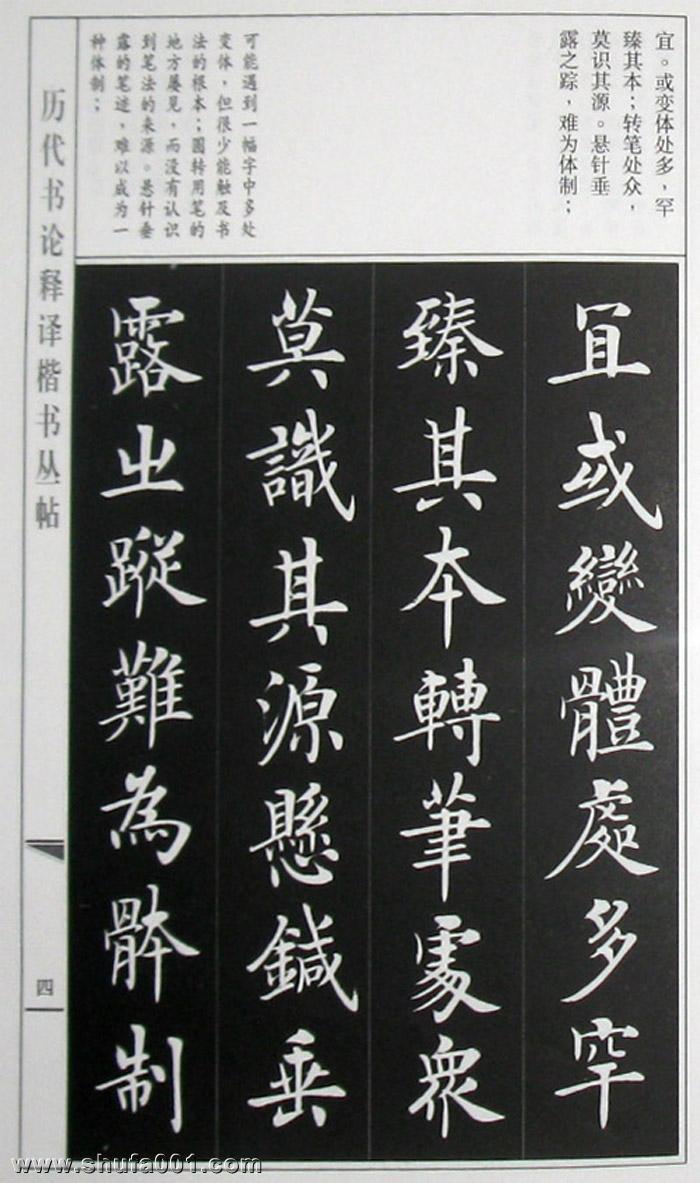 宜。或变体处多，罕
臻其本；转笔处众，
莫识其源。悬针垂
露之踪，难为体制；
可能遇到一幅字中多处
变体，但很少能触及书
法的根本；圆转用笔的
地方屡见，而没有认识
到笔法的来源。悬针垂
露的笔迹，难以成为一
种体制；
冝或變體處多罕
臻其本轉筆處眾
莫識其源懸鍼垂
露之蹤難為骵制
历代书论释译楷书丛帖
四
www.shufa001.com